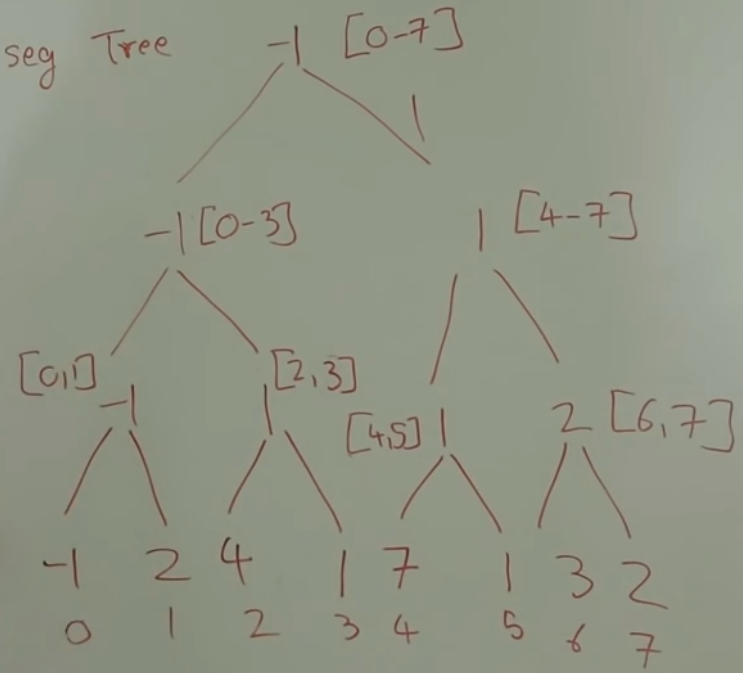 seg Tree -1 [0-7]
1
-1 [0-3] 1 [4-7]
[0,1] [2,3]
-1 1 [4,5] 1 2 [6,7]
-1 2 4 1 7 1 3 2
0 1 2 3 4 5 6 7